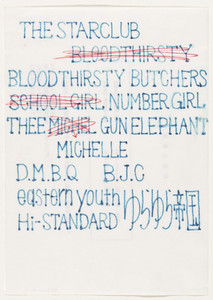 THE STARCLUB
BLOODTHIRSTY
BLOODTHIRSTY BUTCHERS
SCHOOL GIRL, NUMBER GIRL
THEE MICHEL GUN ELEPHANT
MICHELLE
D.M.B.Q B.J.C
eastern youth ゆらゆら帝国
Hi-STANDARD